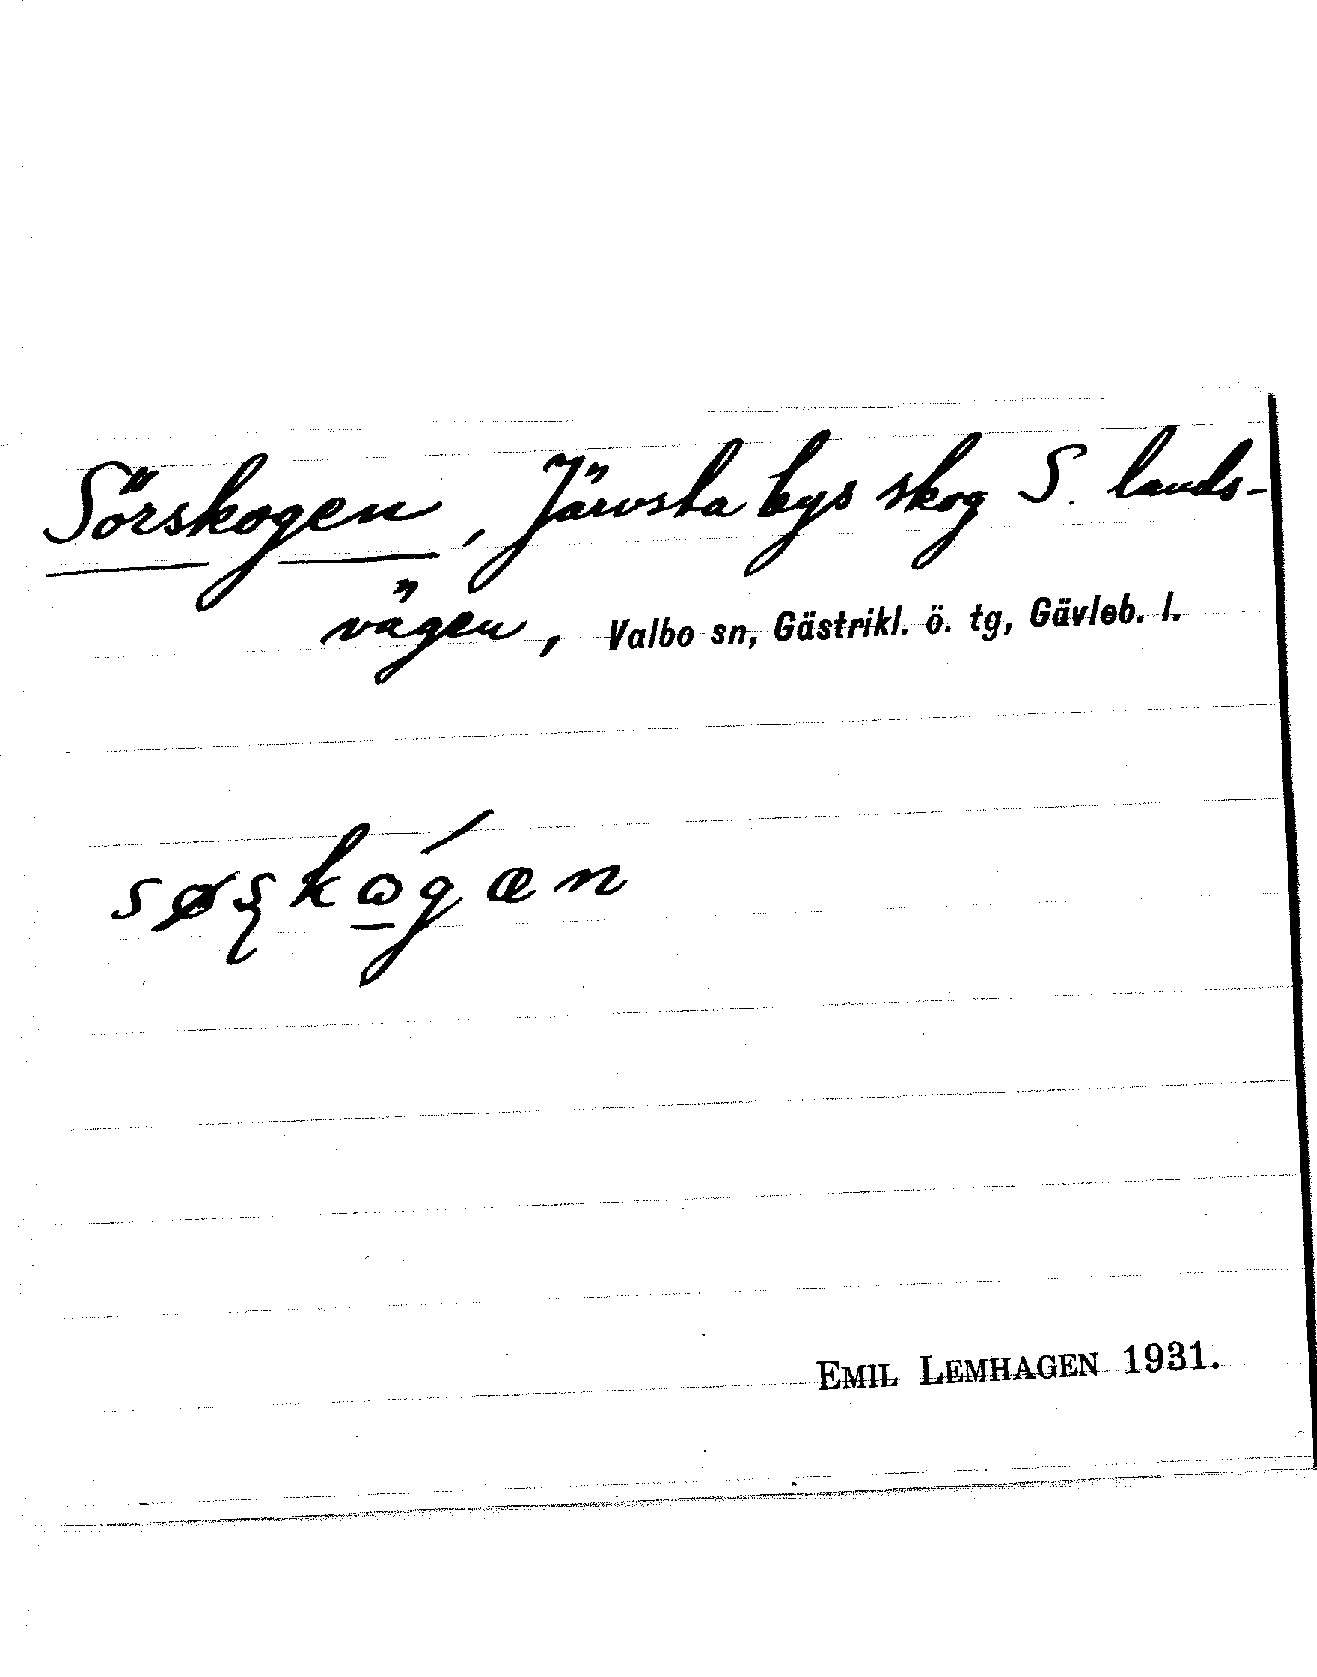 Sörskogen, Järvsta bys skog S. lands-
vägen, Valbo sn, Gästrikl. ö. tg, Gävleb. l.
søʂkώ̲gæn
EMIL LEMHAGEN 1931.